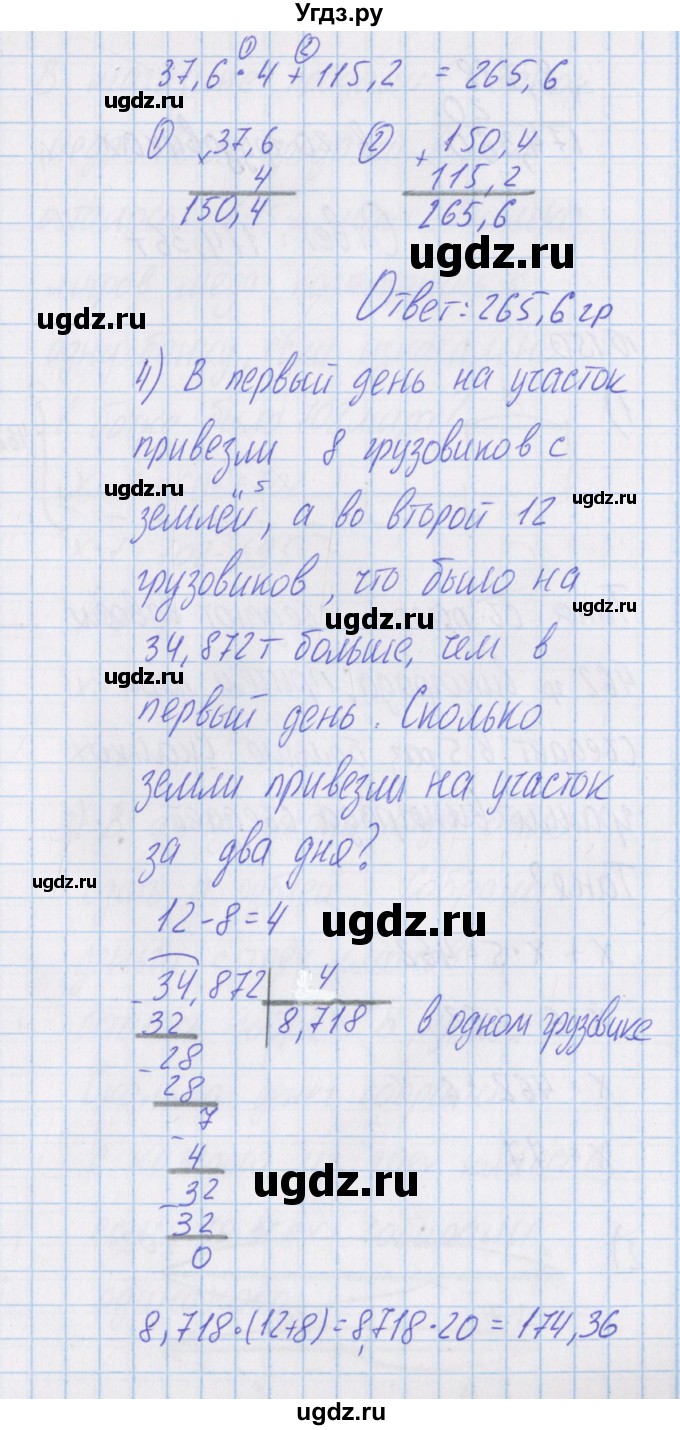 Угдз.ру
① ②
37,6 · 4 + 115,2 = 265,6
ugdz.ru
① × 37,6
4
150,4
② + 150,4
115,2
265,6
ugdz.ru
ugdz.ru
ugdz.ru
Ответ: 265,6 гр
4) В первый день на участок
привезли 8 грузовиков с
ugdz.ru
ugdz.ru
землёй, а во второй 12
грузовиков, что было на
ugdz.ru
ugdz.ru
34,872т больше, чем в
ugdz.ru
первый день. Сколько
земли привезли на участок
за два дня?
ugdz.ru
12-8=4
ugdz.ru
- 34,872 | 4
32 8,718 в одном грузовике
- 28
28
- 7
4
- 32
32
0
ugdz.ru
8,718·(12+8)=8,718·20 = 174,36
ugdz.ru